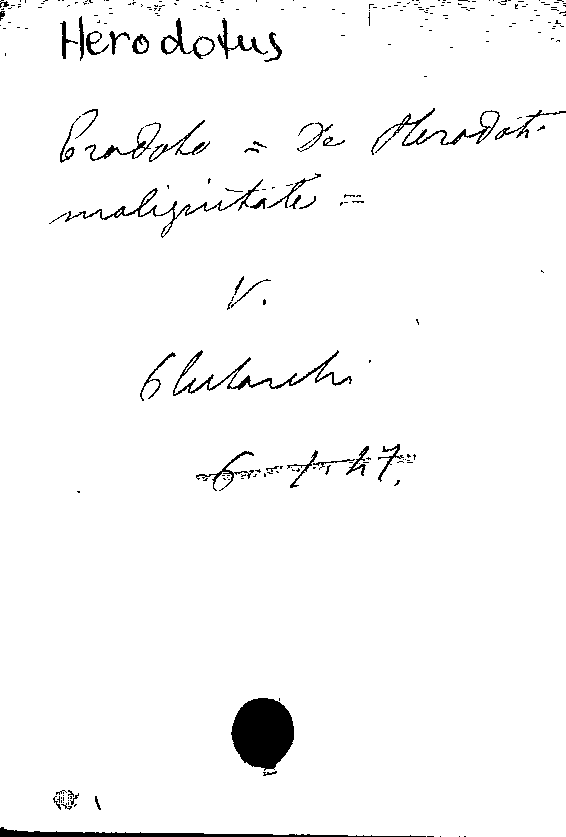 Herodotus
Erodoto = De Herodoti
malignitate =
V.
Plutarchi
6. 1. h 7.